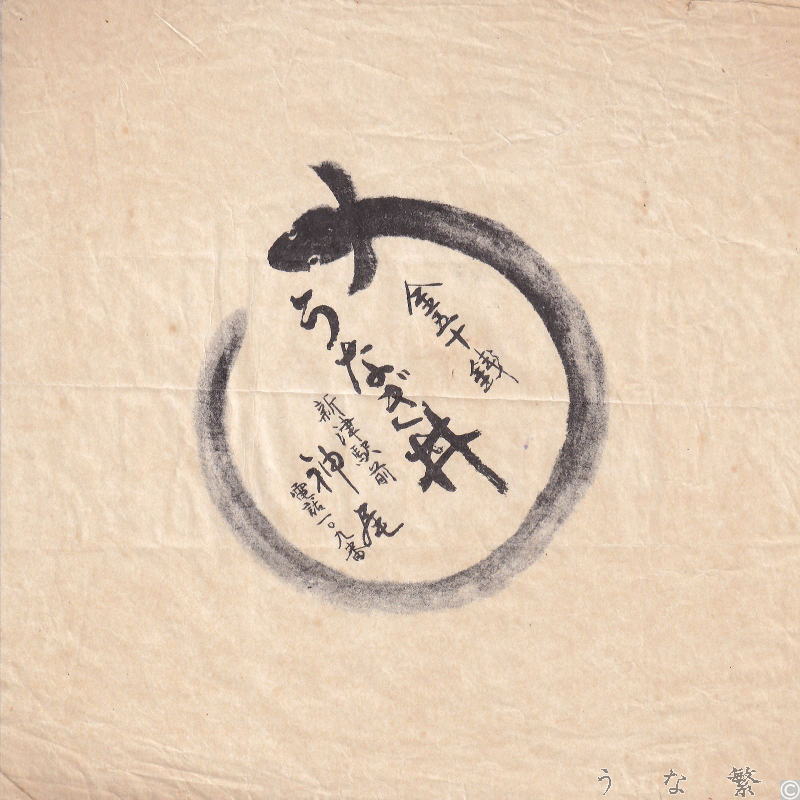 金五十銭
うなぎ丼
新津駅前
神尾
電話一〇九番
うな繁
©